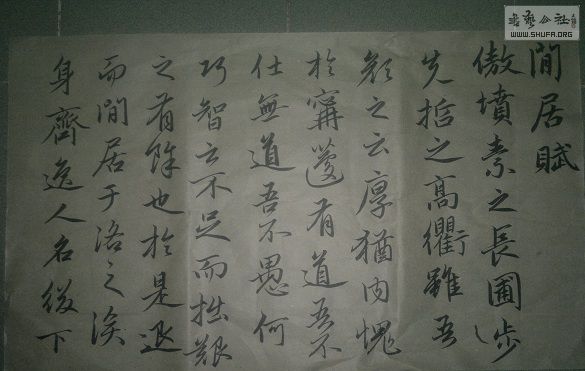 閒居賦
傲墳素之長圃步
先哲之高衢雖吾
顏之云厚猶内愧
於甯蘧有道吾不
仕無道吾不愚何
巧智之不足而拙艱
之有餘也於是退
而閒居于洛之涘
身齊逸人名綴下
書藝公社
WWW.SHUFA.ORG